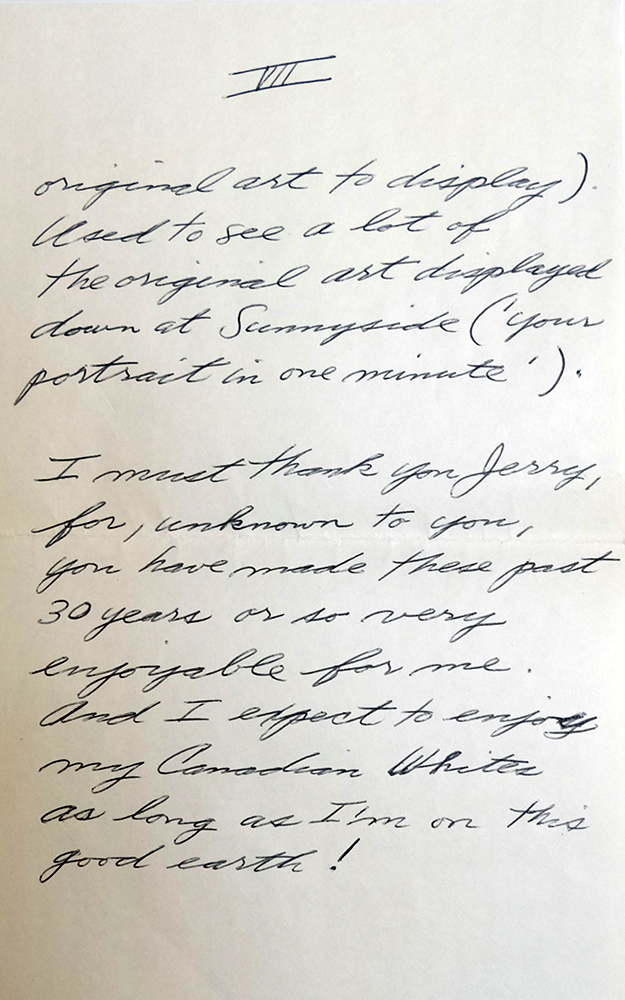 VII
original art to display).
Used to see a lot of
the original art displayed
down at Sunnyside ('your
portrait in one minute').
I must thank you Jerry,
for, unknown to you,
you have made these past
30 years or so very
enjoyable for me.
And I expect to enjoy
my Canadian Whites
as long as I'm on this
good earth!